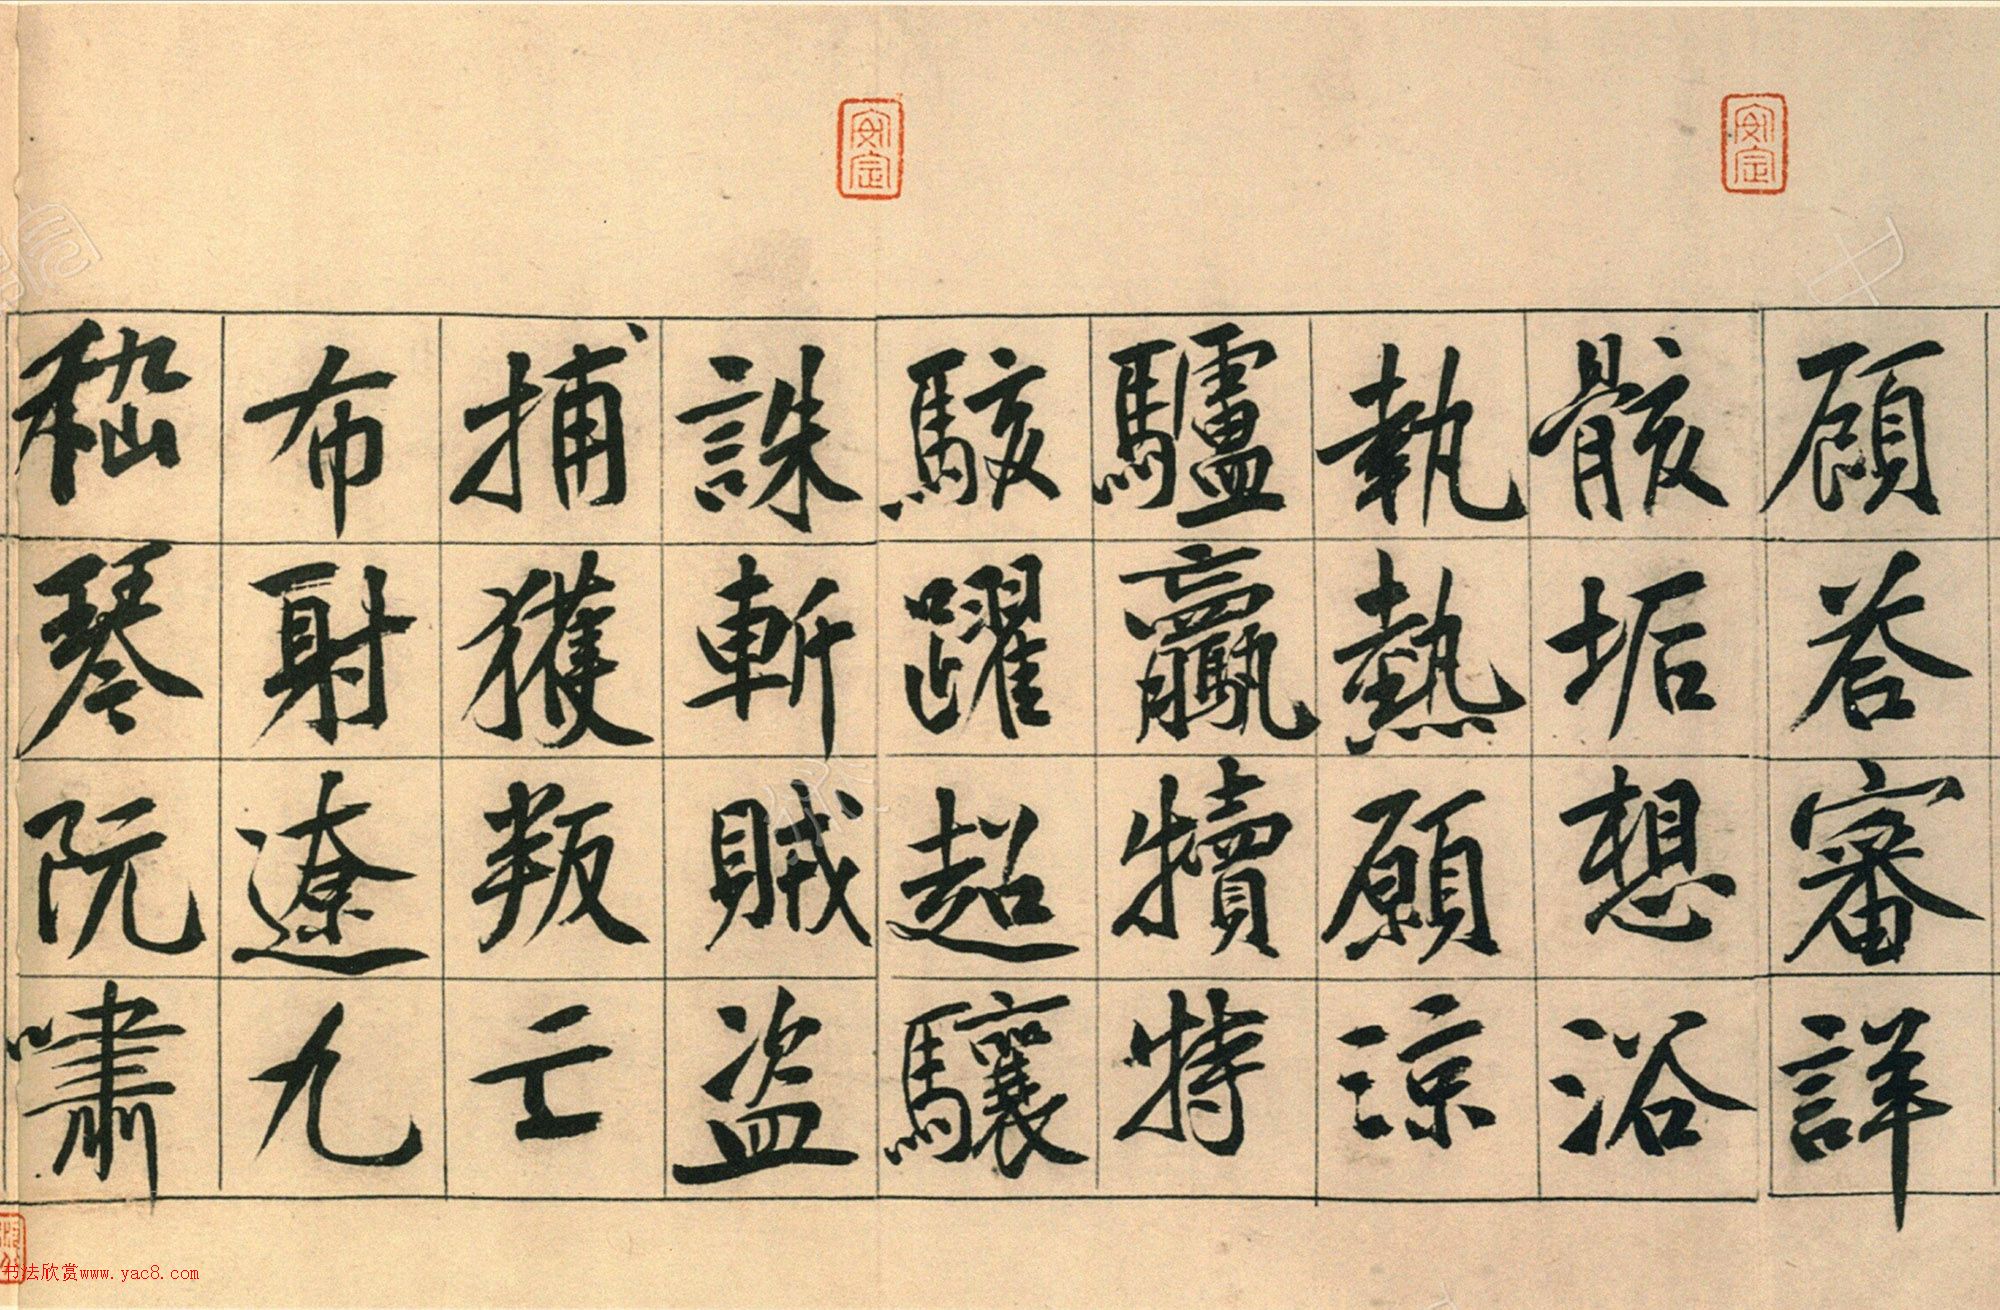 顧荅審詳
骸垢想浴
執熱願涼
驢贏犢特
駭躍超驤
誅斬賊盜
捕獲叛亡
布射遼九
嵇琴阮嘯
安定
安定
书法欣赏www.yac8.com